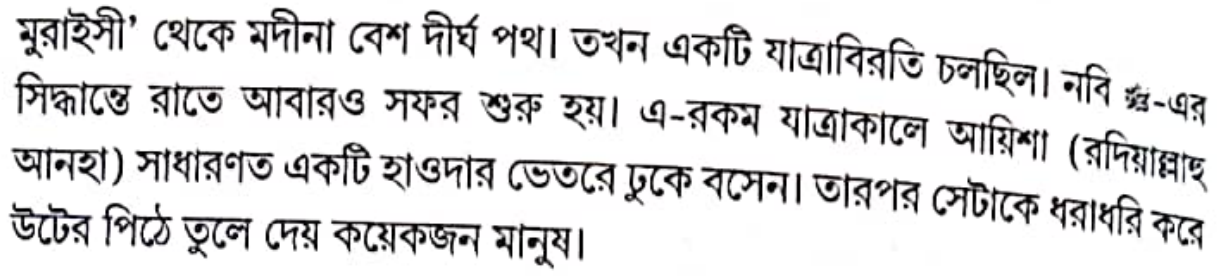 মুরাইসী’ থেকে মদীনা বেশ দীর্ঘ পথ। তখন একটি যাত্রাবিরতি চলছিল। নবি ﷺ-এর
সিদ্ধান্তে রাতে আবারও সফর শুরু হয়। এ-রকম যাত্রাকালে আয়িশা (রদিয়াল্লাহু
আনহা) সাধারণত একটি হাওদার ভেতরে ঢুকে বসেন। তারপর সেটাকে ধরাধরি করে
উটের পিঠে তুলে দেয় কয়েকজন মানুষ।